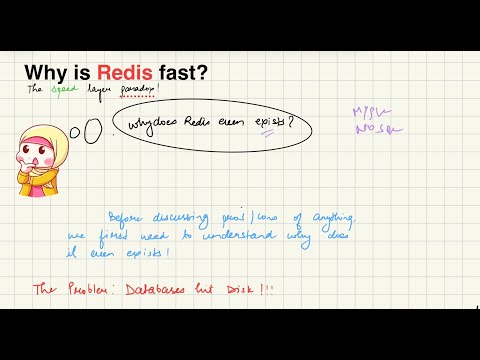 Why is Redis fast?
The speed layer paradox!
why does Redis even exists?
MySQL
NoSQL
Before discussing pros/cons of anything
we first need to understand why does
it even exists!
The Problem: Databases hit Disk!!!